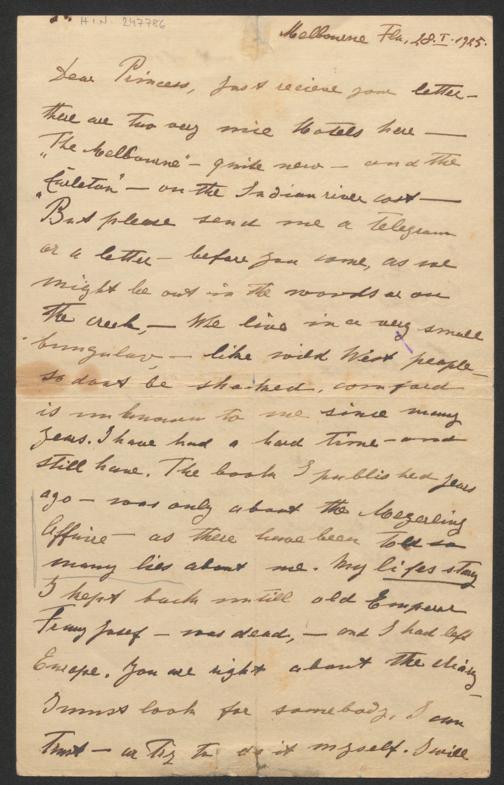 H.I.N. 247786
Melbourne Fla, 28.I.1925.
Dear Princess, just recieve your letter –
there are two very nice Hotels here —
"The Melbourne" – quite new – and the
"Carleton" – on the Indian river cost —
But please send me a telegram
or a letter – before you come, as we
might be out in the woords or on
the creek, — We live in a very small
bungulav, – like wild West people –
so dont be shoked, comford
is unknown to me since many
years. I have had a hard time – and
still have. The book I published years
ago – was only about the Meyerling
Affaire – as there have been told so
many lies about me. My lifes story
I kept back untill old Emperor
Franz Josef – was dead, – and I had left
Europe. You are right about the diary –
I must look for somebody, I can
Trust – or Try to do it myself. I will